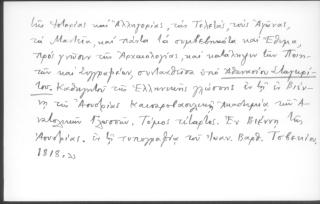 τὰς Ἱστορίας καὶ Ἀλληγορίας, τὰς Τελετὰς, τοὺς Ἀγῶνας,
τὰ Μαντεῖα, καὶ πάντα τὰ συμβεβηκότα καὶ Ἔθιμα,
πρὸς γνῶσιν τῆς Ἀρχαιολογίας, καὶ κατάληψιν τῶν Ποιη-
τῶν καὶ Συγγραφέων, συντεθεῖσα ὑπὸ Ἀθανασίου Σταγειρί-
του, Καθηγητοῦ τῆς Ἑλληνικῆς γλώσσης ἐν τῇ ἐν Βιέν-
νῃ τῆς Αουστρίας Καισαροβασιλικῇ Ἀκαδημίᾳ τῶν Ἀ-
νατολικῶν Γλωσσῶν. Τόμος τέταρτος. Ἐν Βιέννῃ τῆς
Αουστρίας. ἐν τῇ τυπογραφίᾳ τοῦ Ἰωαν. Βαρθ. Τσβεκίου,
1818.»